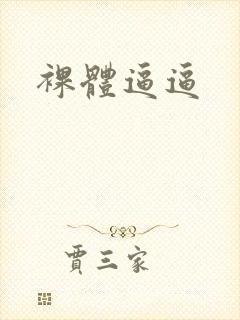 裸體逼逼
賈三家